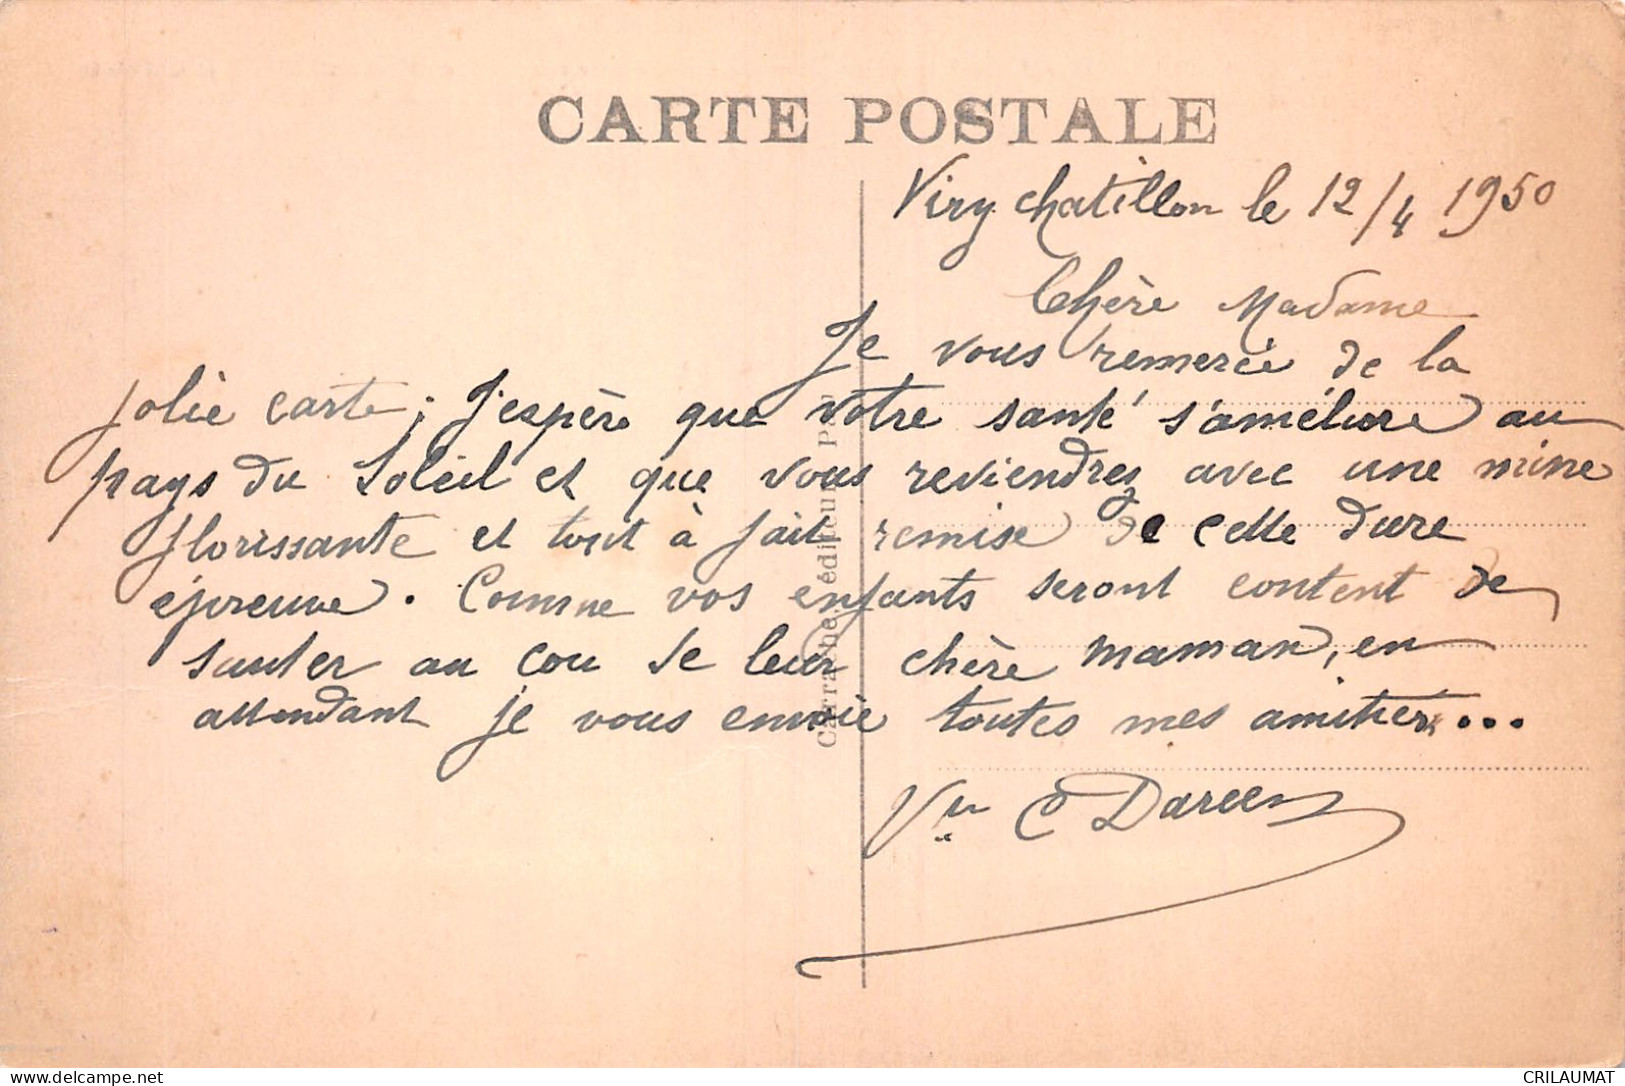 CARTE POSTALE
Viry chatillon le 12/4 1950
Chère Madame
Je vous remercie de la
jolie carte ; J'espère que votre santé s'améliore au
pays du Soleil et que vous reviendres avec une mine
florissante et tout à fait remise de cette dure
épreuve. Comme vos enfants seront content de
sauter au cou de leur chère maman, en
attendant je vous envoie toutes mes amitiés...
Vve C Darcen
Carrache, éditeur, Pau
delcampe.net
CRILAUMAT